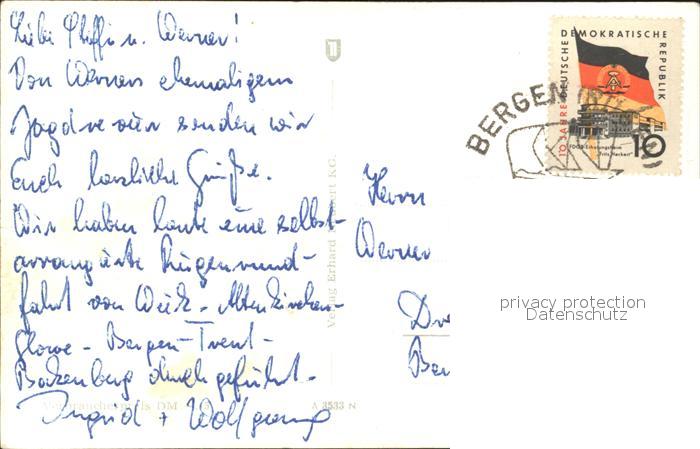 Liebe Steffi u. Werner!
Von Werners ehemaligem
Jagdrevier senden wir
Euch herzliche Grüße.
Wir haben heute eine selbst-
arrangierte Rügenrund-
fahrt von Wiek - Altenkirchen-
Glowe - Bergen - Trent -
Bakenberg durchgeführt.
Ingrid + Wolfgang
Verbraucherpreis DM
A 3533 N
Verlag Erhard KG.
Herrn
Werner
Dr
Ber
BERGEN
10 JAHRE DEUTSCHE DEMOKRATISCHE REPUBLIK
FDGB-Erholungsheim
"Fritz Heckert"
10
privacy protection
Datenschutz